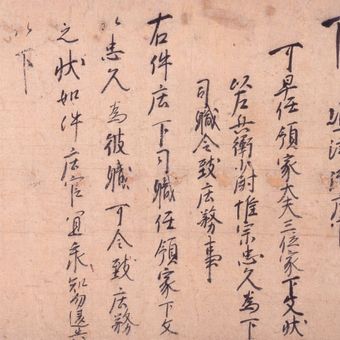 下
可早任領家大夫三位家下文状
以左兵衛少尉惟宗忠久為下
司職令致庄務事
右件庄下司職任領家下文
以忠久為彼職可令致庄務
之状如件庄官宜承知勿違失
以下